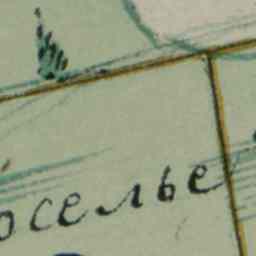 оселье